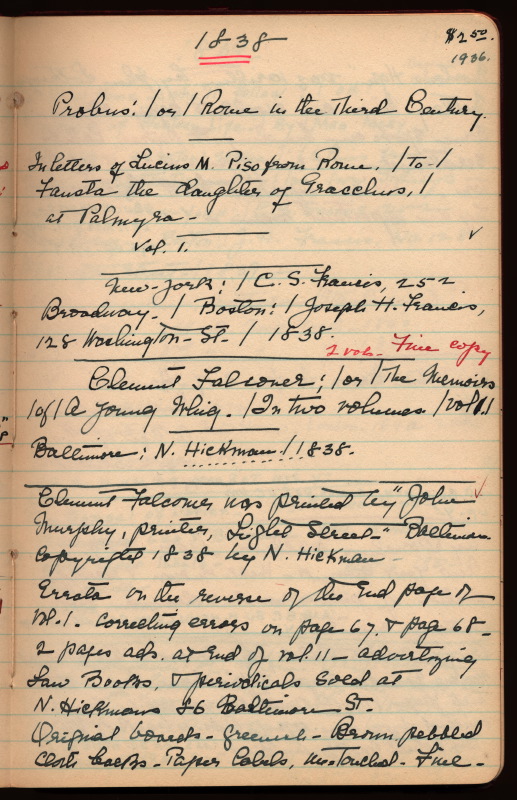 1838
$2.50.
1936.
Probus: / or / Rome in the Third Century.
In letters of Lucius M. Piso from Rome. / To /
Fausta the daughter of Gracchus, /
at Palmyra -
Vol. 1.
New-York: / C. S. Francis, 252
Broadway. / Boston: / Joseph H. Francis,
128 Washington-St. / 1838.
2 vols. Fine copy
Clement Falconer; / or / The Memoirs
/ of / A Young Whig. / In two volumes / vol 1. /
Baltimore: N. Hickman / 1838.
Clement Falconer was printed by "John
Murphy, printer, Light Street-" Baltimore
copyrighted 1838 by N. Hickman
Errata on the reverse of the End page of
vol. 1. correcting errors on page 67. & page 68-
2 pages ads. at End of vol. 11 - advertizing
Law Books, & periodicals sold at
N. Hickmans 86 Baltimore St-
Original boards - greenish - Brown pebbled
cloth backs - Paper labels, un-Touched - Fine -